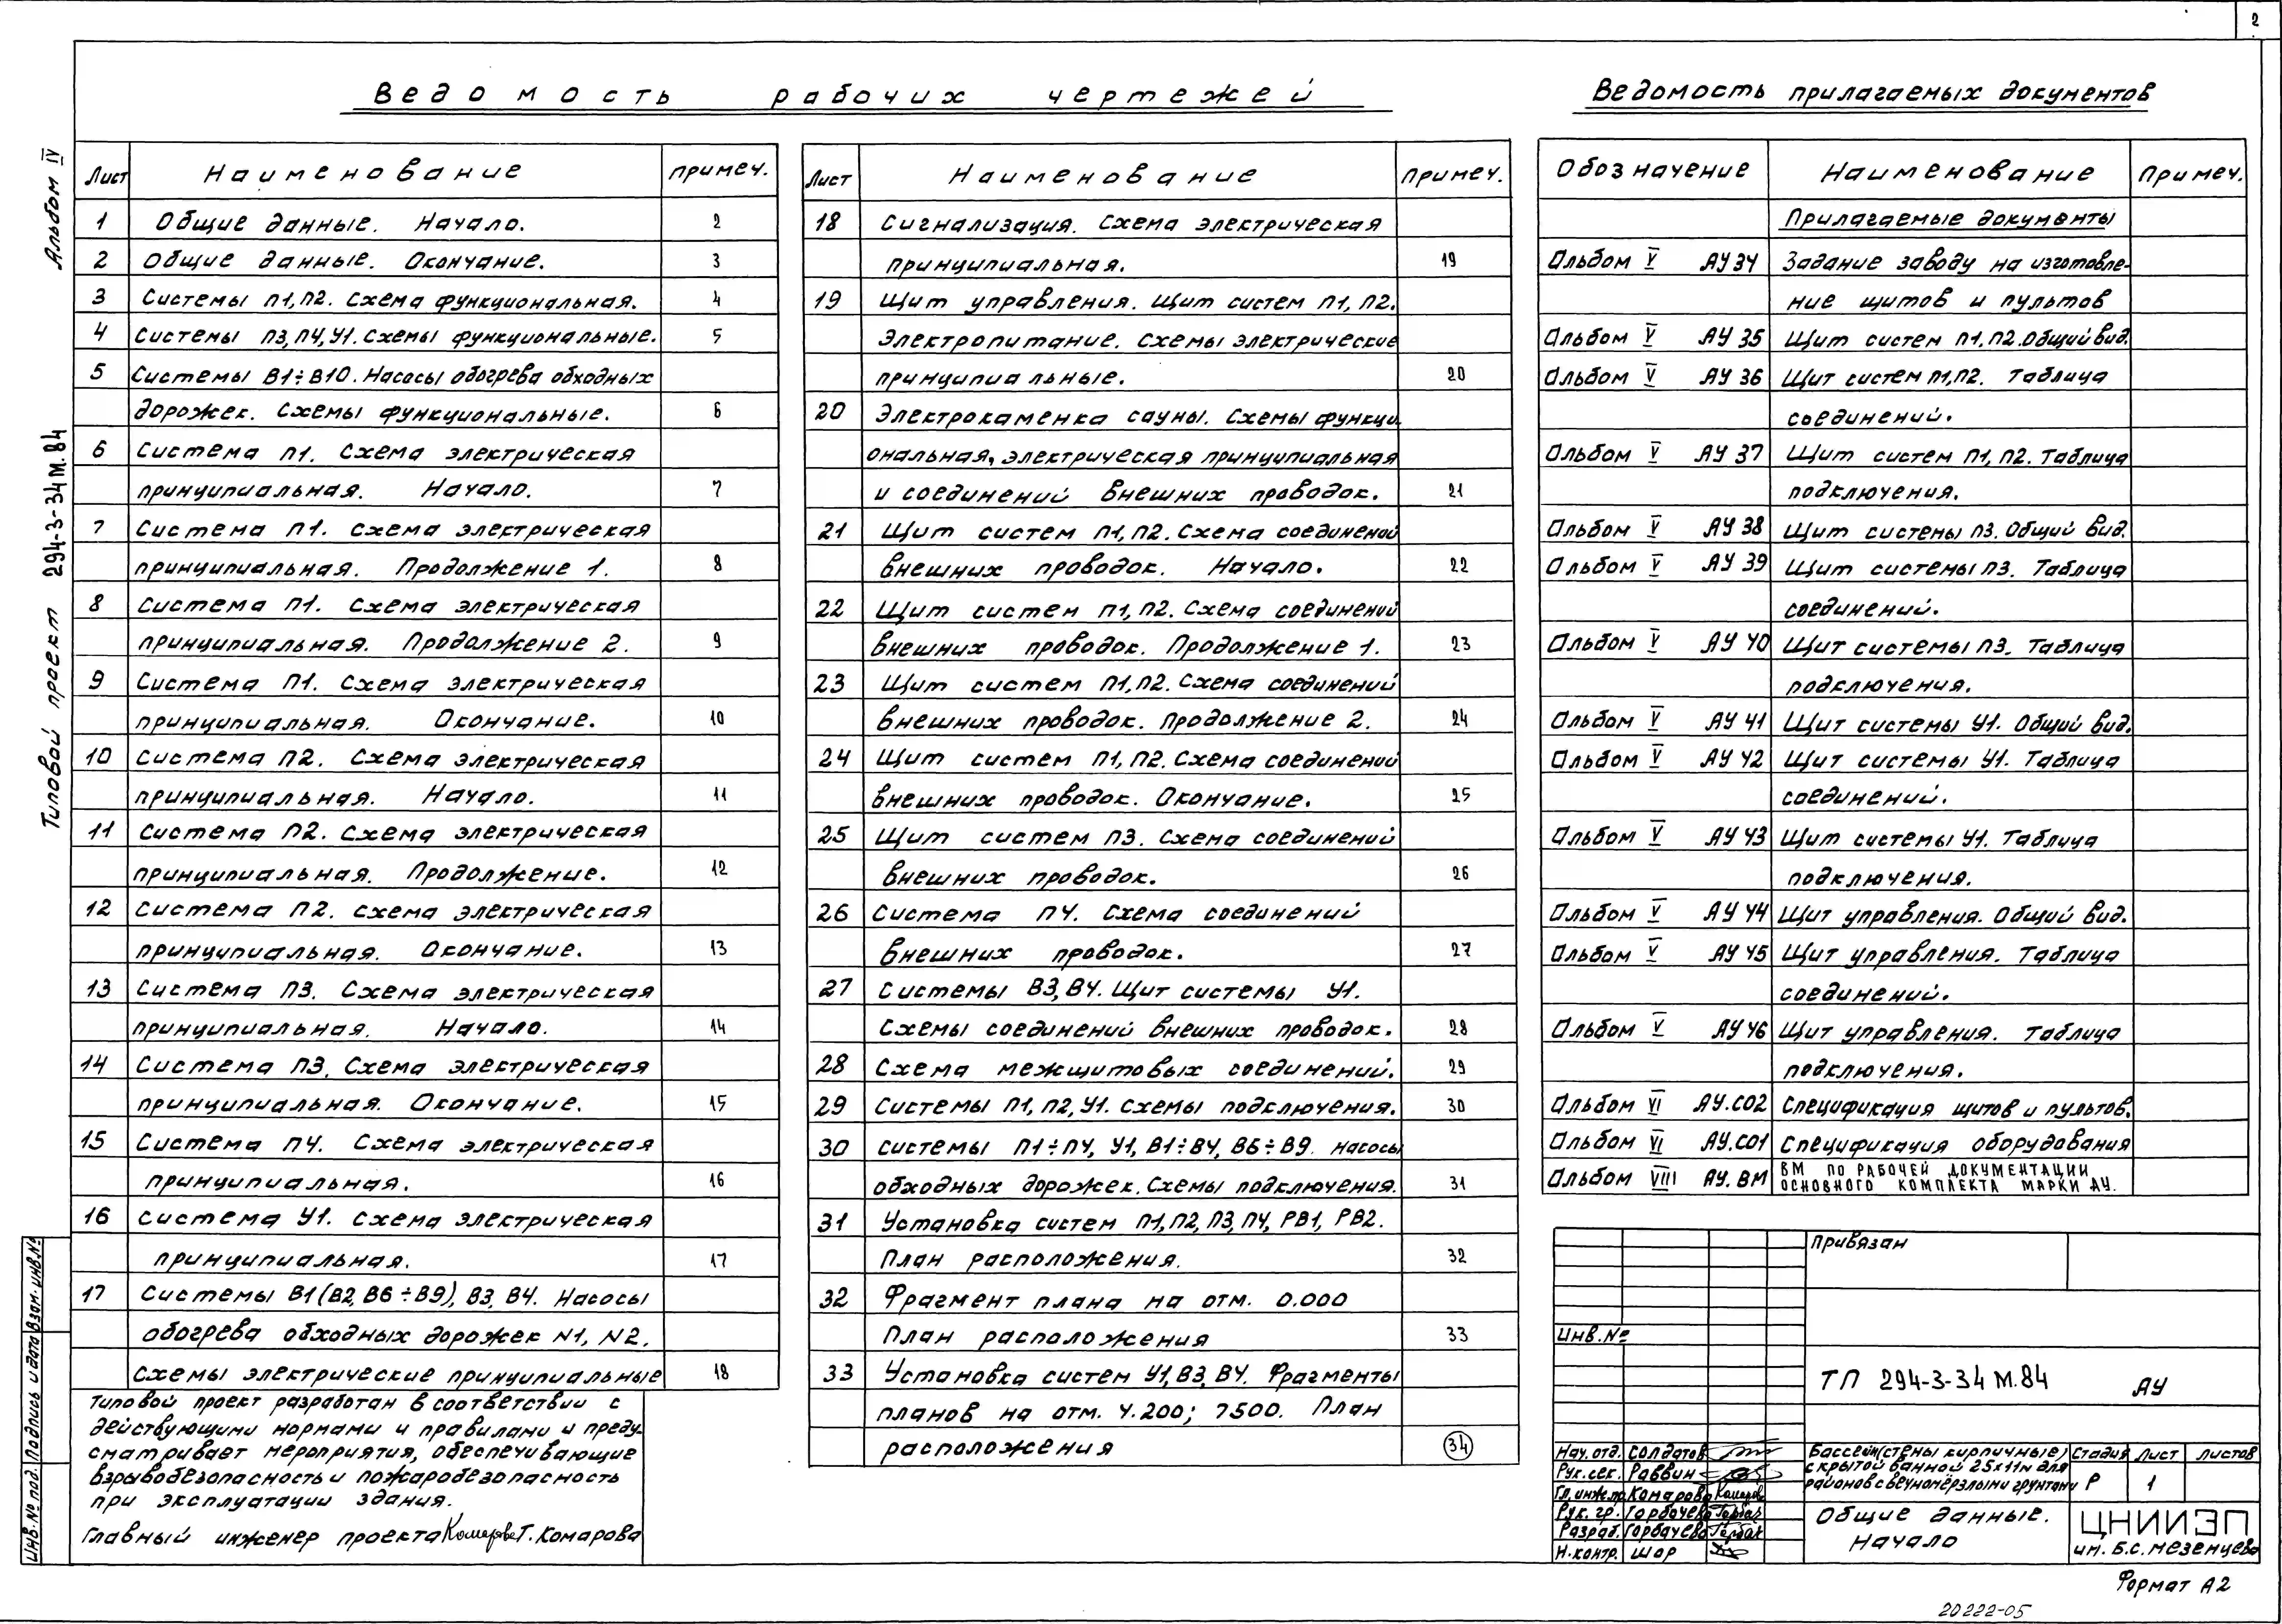 2
Ведомость рабочих чертежей
Лист Наименование примеч.
1 Общие данные. Начало. 2
2 Общие данные. Окончание. 3
3 Системы П1, П2. Схема функциональная. 4
4 Системы П3, П4, У1. Схемы функциональные. 5
5 Системы В1÷В10. Насосы обогрева обходных
дорожек. Схемы функциональные. 6
6 Система П1. Схема электрическая
принципиальная. Начало. 7
7 Система П1. Схема электрическая
принципиальная. Продолжение 1. 8
8 Система П1. Схема электрическая
принципиальная. Продолжение 2. 9
9 Система П1. Схема электрическая
принципиальная. Окончание. 10
10 Система П2. Схема электрическая
принципиальная. Начало. 11
11 Система П2. Схема электрическая
принципиальная. Продолжение. 12
12 Система П2. Схема электрическая
принципиальная. Окончание. 13
13 Система П3. Схема электрическая
принципиальная. Начало. 14
14 Система П3. Схема электрическая
принципиальная. Окончание. 15
15 Система П4. Схема электрическая
принципиальная. 16
16 Система У1. Схема электрическая
принципиальная. 17
17 Системы В1 (В2, В6÷В9), В3, В4. Насосы
обогрева обходных дорожек N1, N2.
Схемы электрические принципиальные 18
Типовой проект разработан в соответствии с
действующими нормами и правилами и преду-
сматривает мероприятия, обеспечивающие
взрывобезопасность и пожаробезопасность
при эксплуатации здания.
Главный инженер проекта Комарова Т. Комарова
Лист Наименование Примеч.
18 Сигнализация. Схема электрическая
принципиальная. 19
19 Щит управления. Щит систем П1, П2.
Электропитание. Схемы электрические
принципиальные. 20
20 Электрокаменка сауны. Схемы функци-
ональная, электрическая принципиальная
и соединений внешних проводок. 21
21 Щит систем П1, П2. Схема соединений
внешних проводок. Начало. 22
22 Щит систем П1, П2. Схема соединений
внешних проводок. Продолжение 1. 23
23 Щит систем П1, П2. Схема соединений
внешних проводок. Продолжение 2. 24
24 Щит систем П1, П2. Схема соединений
внешних проводок. Окончание. 25
25 Щит систем П3. Схема соединений
внешних проводок. 26
26 Система П4. Схема соединений
внешних проводок. 27
27 Системы В3, В4. Щит системы У1.
Схемы соединений внешних проводок. 28
28 Схема межщитовых соединений. 29
29 Системы П1, П2, У1. Схемы подключения. 30
30 Системы П1÷П4, У1, В1÷В4, В6÷В9. Насосы
обходных дорожек. Схемы подключения. 31
31 Установка систем П1, П2, П3, П4, РВ1, РВ2.
План расположения. 32
32 Фрагмент плана на отм. 0.000
План расположения 33
33 Установка систем У1, В3, В4. Фрагменты
планов на отм. 4.200; 7500. План
расположения 34
Ведомость прилагаемых документов
Обозначение Наименование Примеч.
Прилагаемые документы
Альбом V АУ 34 Задание заводу на изготовле-
ние щитов и пультов
Альбом V АУ 35 Щит систем П1, П2. Общий вид.
Альбом V АУ 36 Щит систем П1, П2. Таблица
соединений.
Альбом V АУ 37 Щит систем П1, П2. Таблица
подключения.
Альбом V АУ 38 Щит системы П3. Общий вид.
Альбом V АУ 39 Щит системы П3. Таблица
соединений.
Альбом V АУ 40 Щит системы П3. Таблица
подключения.
Альбом V АУ 41 Щит системы У1. Общий вид.
Альбом V АУ 42 Щит системы У1. Таблица
соединений.
Альбом V АУ 43 Щит системы У1. Таблица
подключения.
Альбом V АУ 44 Щит управления. Общий вид.
Альбом V АУ 45 Щит управления. Таблица
соединений.
Альбом V АУ 46 Щит управления. Таблица
подключения.
Альбом VI АУ.СО2 Спецификация щитов и пультов.
Альбом VI АУ.СО1 Спецификация оборудования
Альбом VIII АУ.ВМ ВМ ПО РАБОЧЕЙ ДОКУМЕНТАЦИИ
ОСНОВНОГО КОМПЛЕКТА МАРКИ АУ.
Привязан
Инв.№
ТП 294-3-34 М.84 АУ
Нач. отд. Солдатов
Рук. сек. Раввин
Гл. инж. пр. Комарова Комарова
Рук. гр. Горбачева
Разраб. Горбачева
Н. контр. Шор
Бассейн (стены кирпичные)
с крытой ванной 25х11м для
районов с вечномёрзлыми грунтами
Стадия Лист Листов
Р 1
Общие данные.
Начало
ЦНИИЭП
им. Б.С. Мезенцева
Формат А2
20222-05
Альбом IV
Типовой проект 294-3-34 М.84
Инв.№ под. Подпись и дата Взам. инв.№